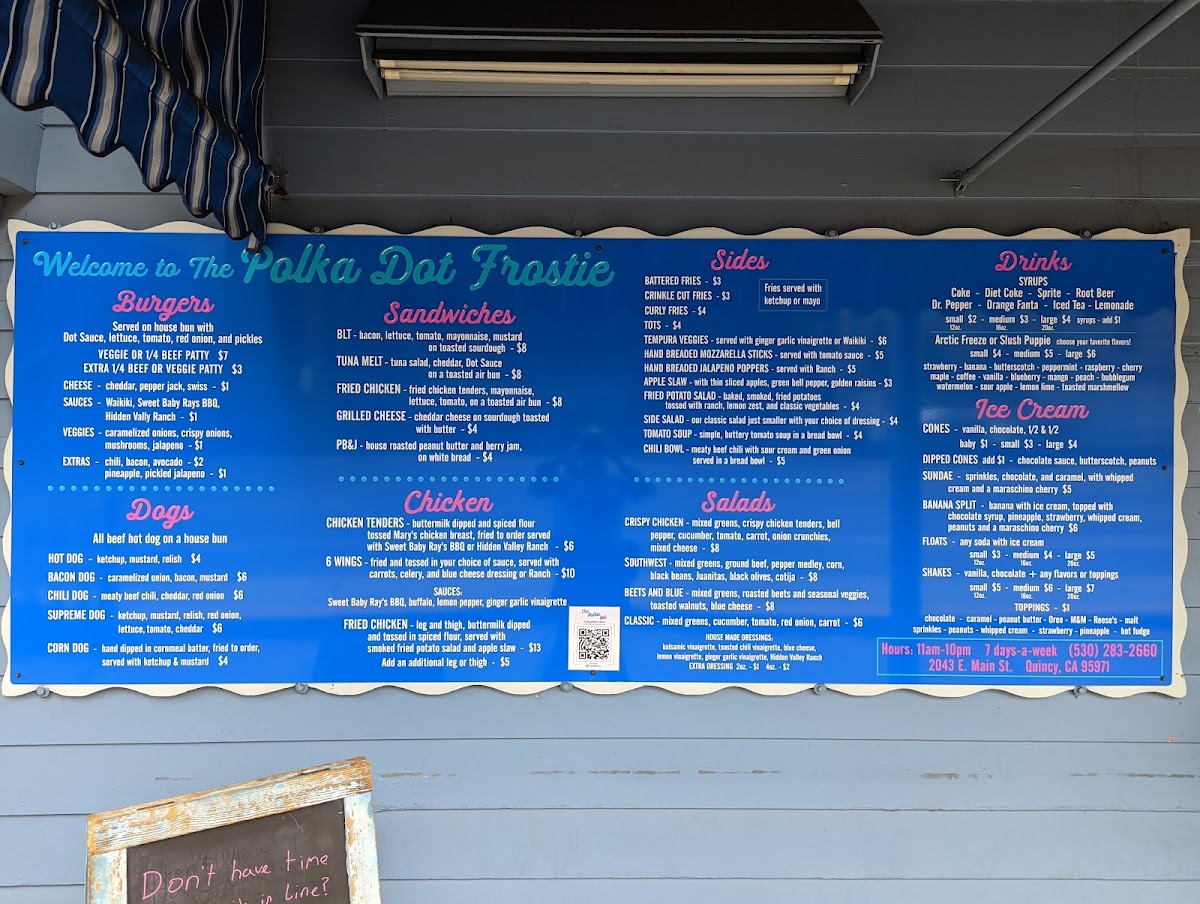 Welcome to The Polka Dot Frostie
Burgers
Served on house bun with
Dot Sauce, lettuce, tomato, red onion, and pickles
VEGGIE OR 1/4 BEEF PATTY $7
EXTRA 1/4 BEEF OR VEGGIE PATTY $3
CHEESE - cheddar, pepper jack, swiss - $1
SAUCES - Waikiki, Sweet Baby Rays BBQ,
Hidden Vally Ranch - $1
VEGGIES - caramelized onions, crispy onions,
mushrooms, jalapeno - $1
EXTRAS - chili, bacon, avocado - $2
pineapple, pickled jalapeno - $1
Dogs
All beef hot dog on a house bun
HOT DOG - ketchup, mustard, relish $4
BACON DOG - caramelized onion, bacon, mustard $6
CHILI DOG - meaty beef chili, cheddar, red onion $6
SUPREME DOG - ketchup, mustard, relish, red onion,
lettuce, tomato, cheddar $6
CORN DOG - hand dipped in cornmeal batter, fried to order,
served with ketchup & mustard $4
Sandwiches
BLT - bacon, lettuce, tomato, mayonnaise, mustard
on toasted sourdough - $8
TUNA MELT - tuna salad, cheddar, Dot Sauce
on a toasted air bun - $8
FRIED CHICKEN - fried chicken tenders, mayonnaise,
lettuce, tomato, on a toasted air bun - $8
GRILLED CHEESE - cheddar cheese on sourdough toasted
with butter - $4
PB&J - house roasted peanut butter and berry jam,
on white bread - $4
Chicken
CHICKEN TENDERS - buttermilk dipped and spiced flour
tossed Mary's chicken breast, fried to order served
with Sweet Baby Ray's BBQ or Hidden Valley Ranch - $6
6 WINGS - fried and tossed in your choice of sauce, served with
carrots, celery, and blue cheese dressing or Ranch - $10
SAUCES:
Sweet Baby Ray's BBQ, buffalo, lemon pepper, ginger garlic vinaigrette
FRIED CHICKEN - leg and thigh, buttermilk dipped
and tossed in spiced flour, served with
smoked fried potato salad and apple slaw - $13
Add an additional leg or thigh - $5
Sides
BATTERED FRIES - $3
CRINKLE CUT FRIES - $3
CURLY FRIES - $4
TOTS - $4
Fries served with
ketchup or mayo
TEMPURA VEGGIES - served with ginger garlic vinaigrette or Waikiki - $6
HAND BREADED MOZZARELLA STICKS - served with tomato sauce - $5
HAND BREADED JALAPENO POPPERS - served with Ranch - $5
APPLE SLAW - with thin sliced apples, green bell pepper, golden raisins - $3
FRIED POTATO SALAD - baked, smoked, fried potatoes
tossed with ranch, lemon zest, and classic vegetables - $4
SIDE SALAD - our classic salad just smaller with your choice of dressing - $4
TOMATO SOUP - simple, buttery tomato soup in a bread bowl - $4
CHILI BOWL - meaty beef chili with sour cream and green onion
served in a bread bowl - $5
Salads
CRISPY CHICKEN - mixed greens, crispy chicken tenders, bell
pepper, cucumber, tomato, carrot, onion crunchies,
mixed cheese - $8
SOUTHWEST - mixed greens, ground beef, pepper medley, corn,
black beans, Juanitas, black olives, cotija - $8
BEETS AND BLUE - mixed greens, roasted beets and seasonal veggies,
toasted walnuts, blue cheese - $8
CLASSIC - mixed greens, cucumber, tomato, red onion, carrot - $6
HOUSE MADE DRESSINGS:
balsamic vinaigrette, toasted chili vinaigrette, blue cheese,
lemon vinaigrette, ginger garlic vinaigrette, Hidden Valley Ranch
EXTRA DRESSING 2oz. - $1 4oz. - $2
Drinks
SYRUPS
Coke - Diet Coke - Sprite - Root Beer
Dr. Pepper - Orange Fanta - Iced Tea - Lemonade
small $2 - medium $3 - large $4 syrups - add $1
12oz. 16oz. 20oz.
Arctic Freeze or Slush Puppie choose your favorite flavors!
small $4 - medium $5 - large $6
strawberry - banana - butterscotch - peppermint - raspberry - cherry
maple - coffee - vanilla - blueberry - mango - peach - bubblegum
watermelon - sour apple - lemon lime - toasted marshmellow
Ice Cream
CONES - vanilla, chocolate, 1/2 & 1/2
baby $1 - small $3 - large $4
DIPPED CONES add $1 - chocolate sauce, butterscotch, peanuts
SUNDAE - sprinkles, chocolate, and caramel, with whipped
cream and a maraschino cherry $5
BANANA SPLIT - banana with ice cream, topped with
chocolate syrup, pineapple, strawberry, whipped cream,
peanuts and a maraschino cherry $6
FLOATS - any soda with ice cream
small $3 - medium $4 - large $5
12oz. 16oz. 20oz.
SHAKES - vanilla, chocolate + any flavors or toppings
small $5 - medium $6 - large $7
12oz. 16oz. 20oz.
TOPPINGS - $1
chocolate - caramel - peanut butter - Oreo - M&M - Reese's - malt
sprinkles - peanuts - whipped cream - strawberry - pineapple - hot fudge
Hours: 11am-10pm 7 days-a-week (530) 283-2660
2043 E. Main St. Quincy, CA 95971
Don't have time
in line?